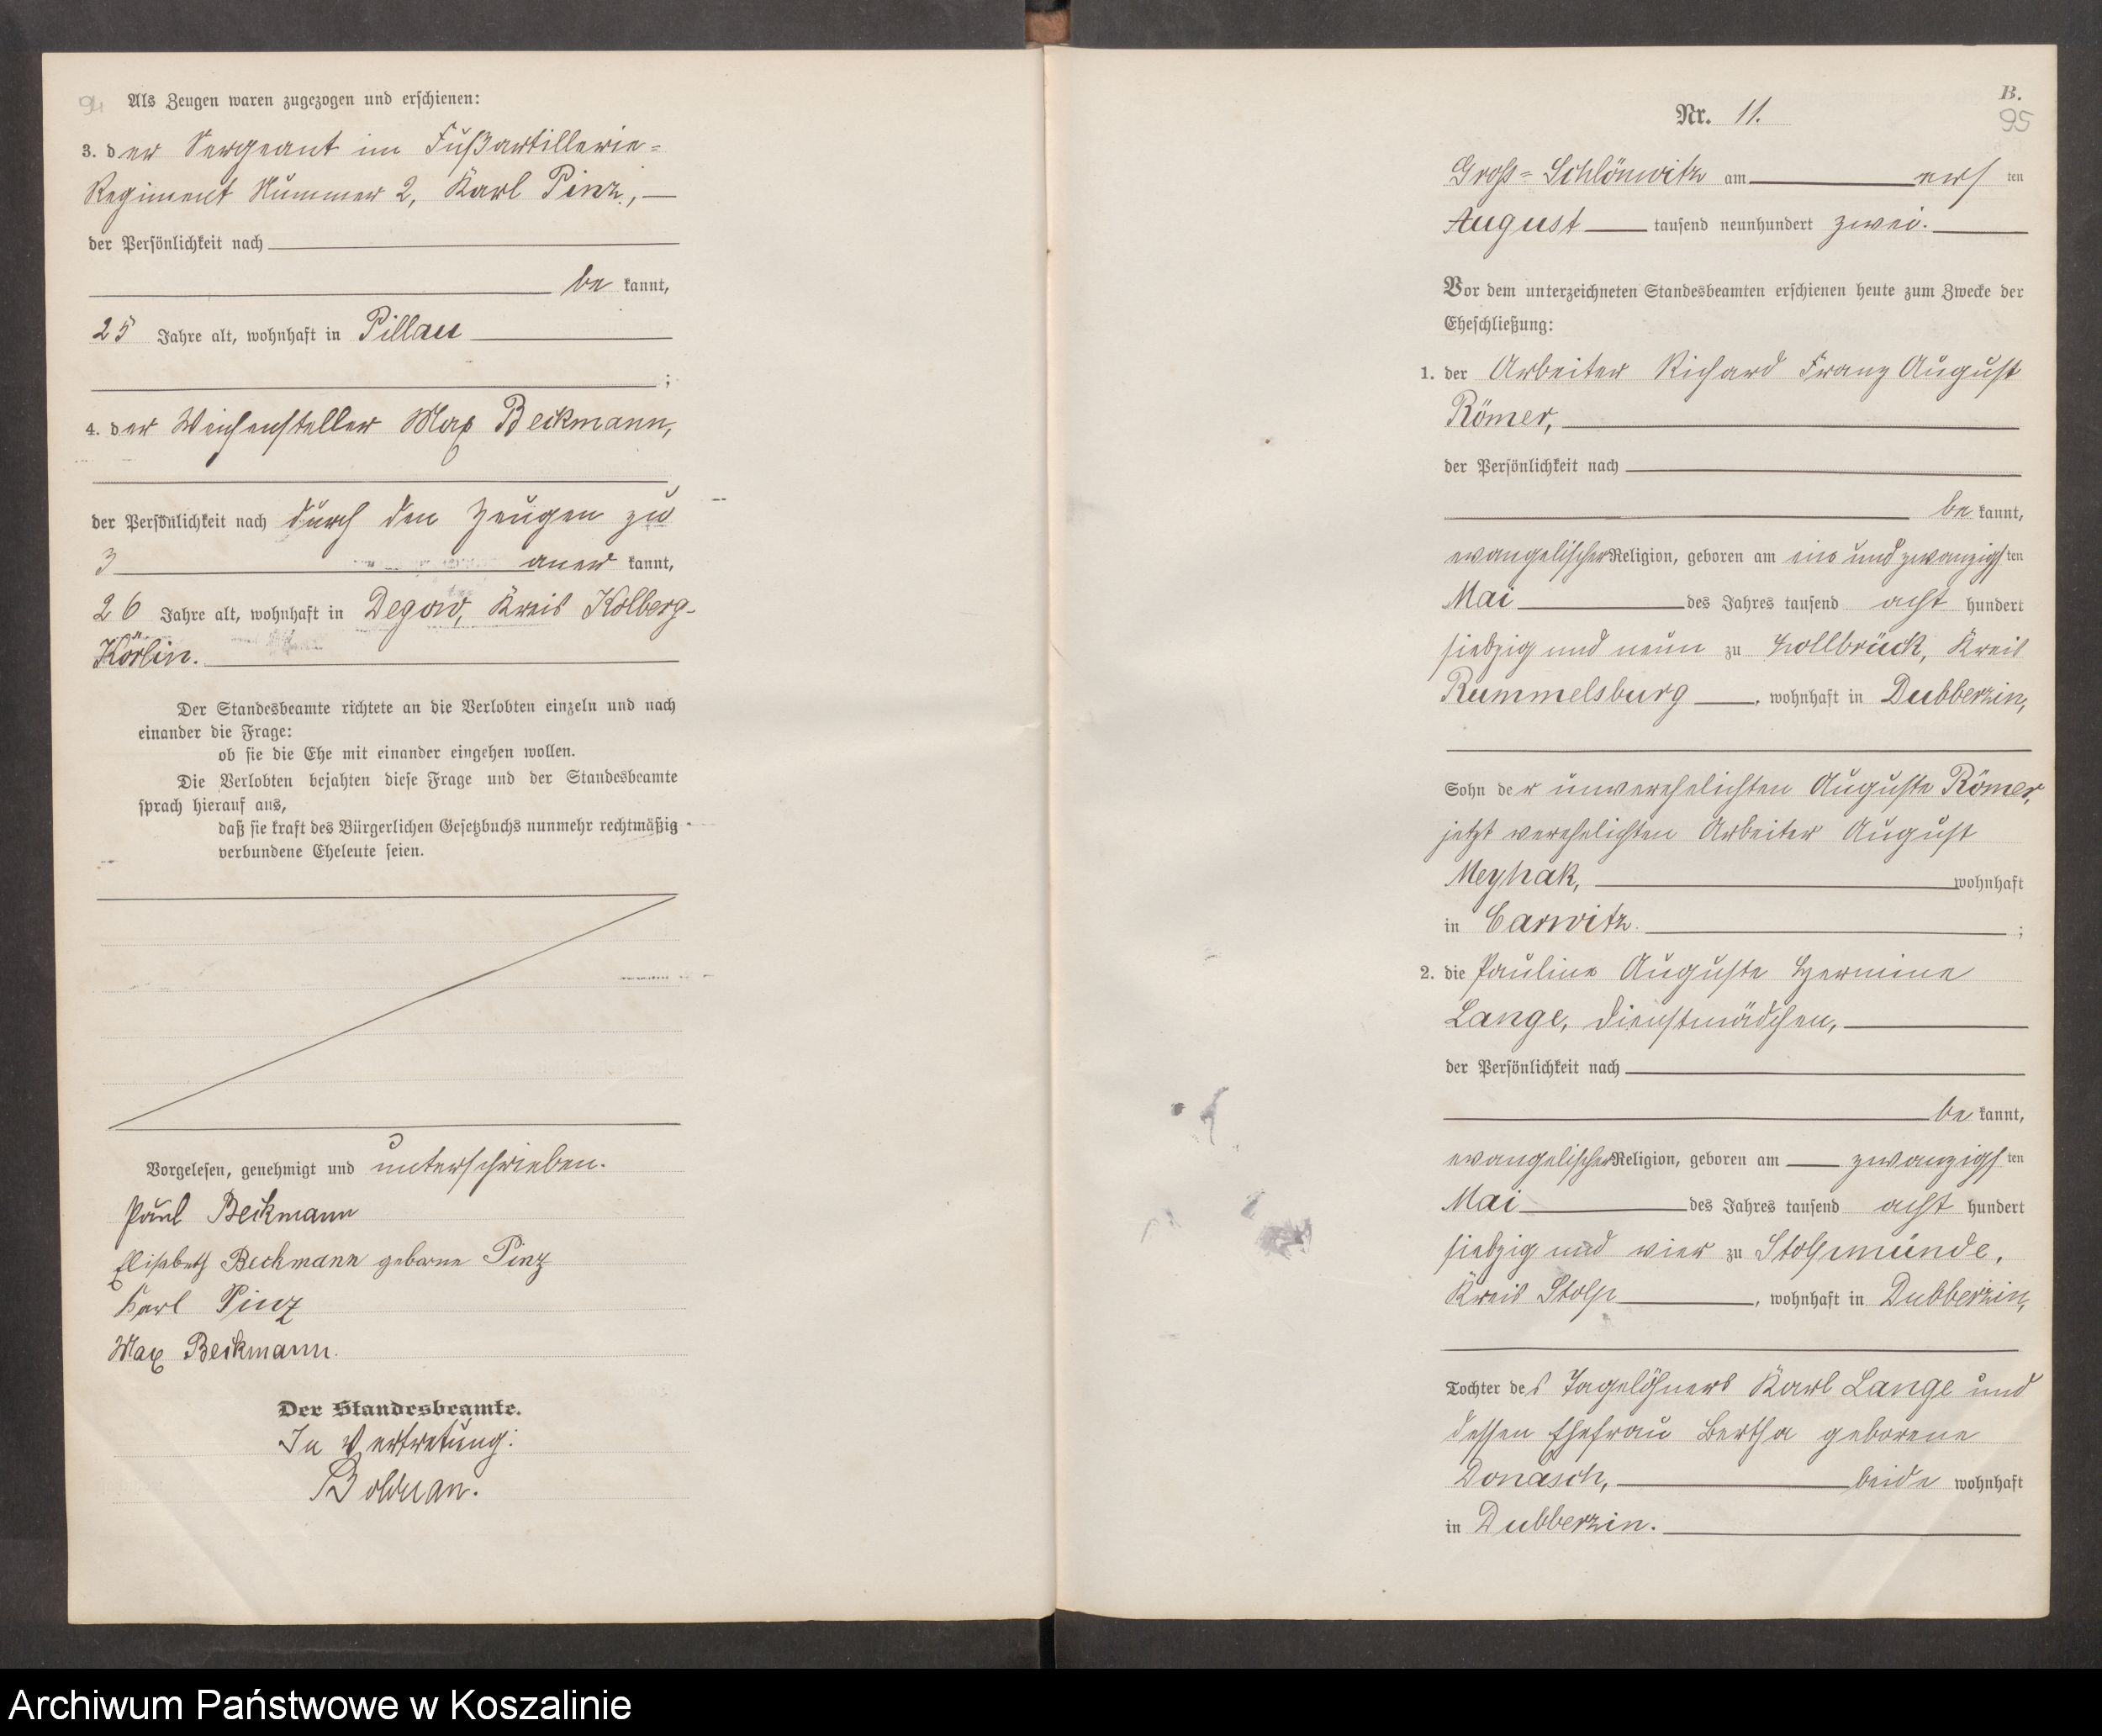 94
Als Zeugen waren zugezogen und erschienen:
3. der Sergeant im Fußartillerie=
Regiment Nummer 2, Karl Pinz,
der Persönlichkeit nach
be kannt,
25 Jahre alt, wohnhaft in Pillau
;
4. der Weichensteller Max Beckmann,
der Persönlichkeit nach durch den Zeugen zu
3 aner kannt,
26 Jahre alt, wohnhaft in Degow, Kreis Kolberg-
Körlin.
Der Standesbeamte richtete an die Verlobten einzeln und nach
einander die Frage:
ob sie die Ehe mit einander eingehen wollen.
Die Verlobten bejahten diese Frage und der Standesbeamte
sprach hierauf aus,
daß sie kraft des Bürgerlichen Gesetzbuchs nunmehr rechtmäßig
verbundene Eheleute seien.
Vorgelesen, genehmigt und unterschrieben.
Paul Beckmann
Elisabeth Beckmann geborne Pinz
Karl Pinz
Max Beckmann.
Der Standesbeamte.
In Vertretung:
Bolduan.
B.
95
Nr. 11.
Groß=Schlönwitz am ers ten
August tausend neunhundert zwei.
Vor dem unterzeichneten Standesbeamten erschienen heute zum Zwecke der
Eheschließung:
1. der Arbeiter Richard Franz August
Römer,
der Persönlichkeit nach
be kannt,
evangelischer Religion, geboren am ein und zwanzigs ten
Mai des Jahres tausend acht hundert
siebzig und neun zu Zollbrück, Kreis
Rummelsburg, wohnhaft in Dubberzin,
Sohn der unverehelichten Auguste Römer,
jetzt verehelichten Arbeiter August
Meyhak, wohnhaft
in Carwitz. ;
2. die Pauline Auguste Hermine
Lange, Dienstmädchen,
der Persönlichkeit nach
be kannt,
evangelischer Religion, geboren am zwanzigs ten
Mai des Jahres tausend acht hundert
siebzig und vier zu Stolpmünde,
Kreis Stolp, wohnhaft in Dubberzin,
Tochter des Tagelöhners Karl Lange und
dessen Ehefrau Bertha geborene
Donasch, beide wohnhaft
in Dubberzin.
Archiwum Państwowe w Koszalinie